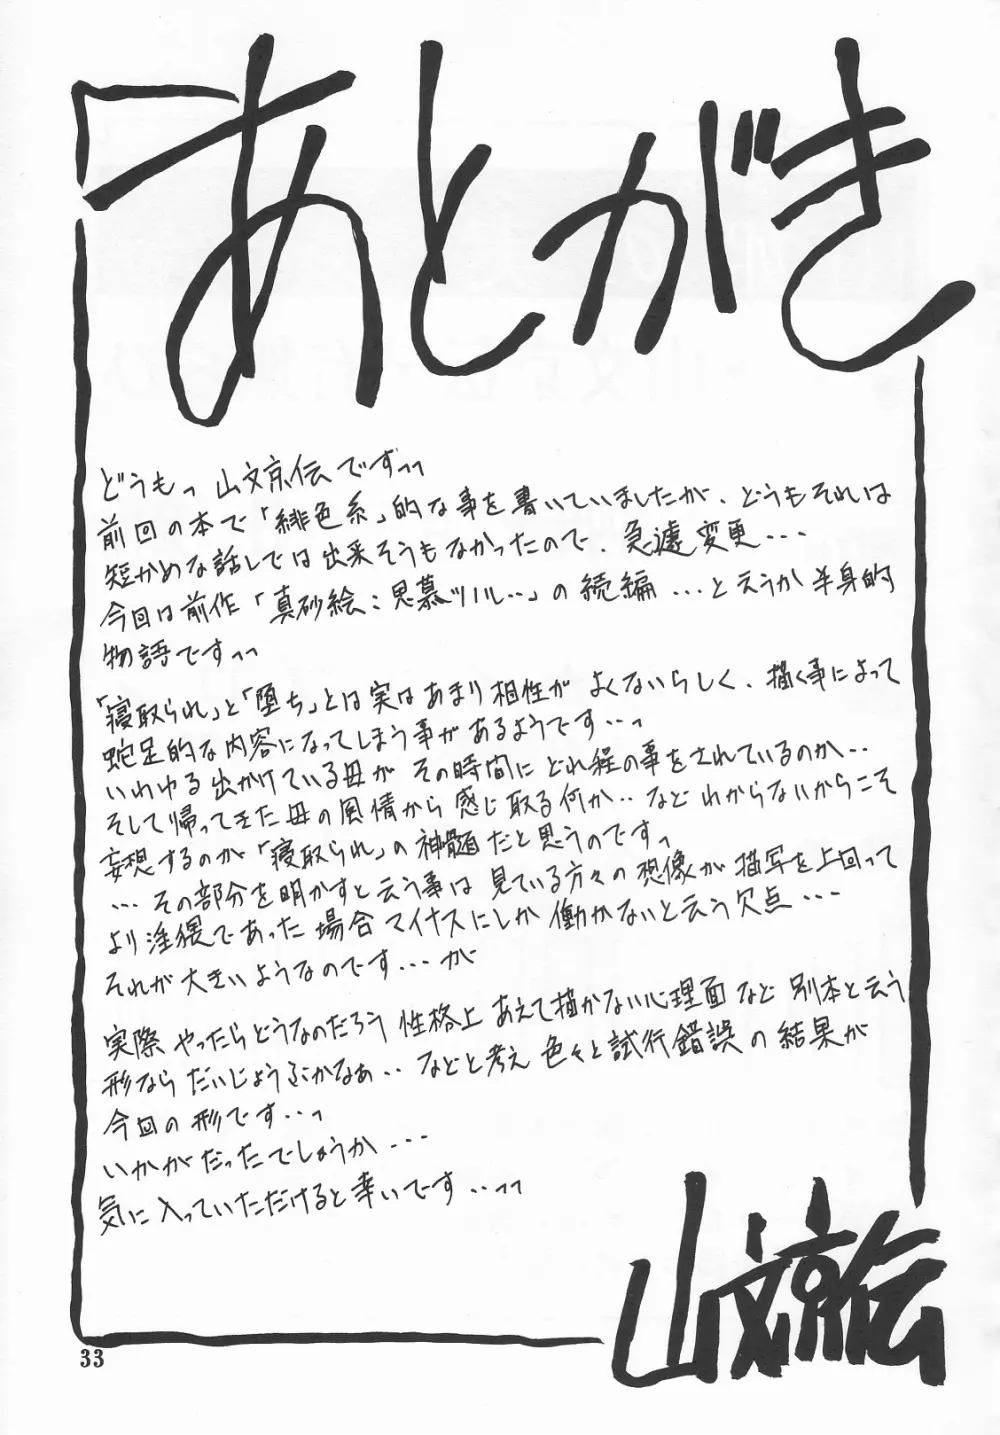 あとがき
どうもっ 山文京伝ですっっ
前回の本で「緋色系」的な事を書いていましたが、どうもそれは
短かめな話しでは出来そうもなかったので、急遽変更・・・
今回は前作「真砂絵:思慕ツノル‥」の続編・・・と云うか半身的
物語ですっっ
「寝取られ」と「堕ち」とは実はあまり相性がよくないらしく、描く事によって
蛇足的な内容になってしまう事があるようです・・・っ
いわゆる出かけている母がその時間にどれ程の事をされているのか‥
そして帰ってきた母の風情から感じ取る何か‥などわからないからこそ
妄想するのが「寝取られ」の神髄だと思うのですっ
・・・その部分を明かすと云う事は見ている方々の想像が描写を上回って
より淫猥であった場合マイナスにしか働かないと云う欠点・・・
それが大きいようなのです・・・が
実際やったらどうなのだろう 性格上あえて描かない心理面など別本と云う
形ならだいじょうぶかなぁ‥などと考え色々と試行錯誤の結果が
今回の形です・・・っ
いかがだったでしょうか・・・
気に入っていただけると幸いです・・・っっ
山文京伝
33